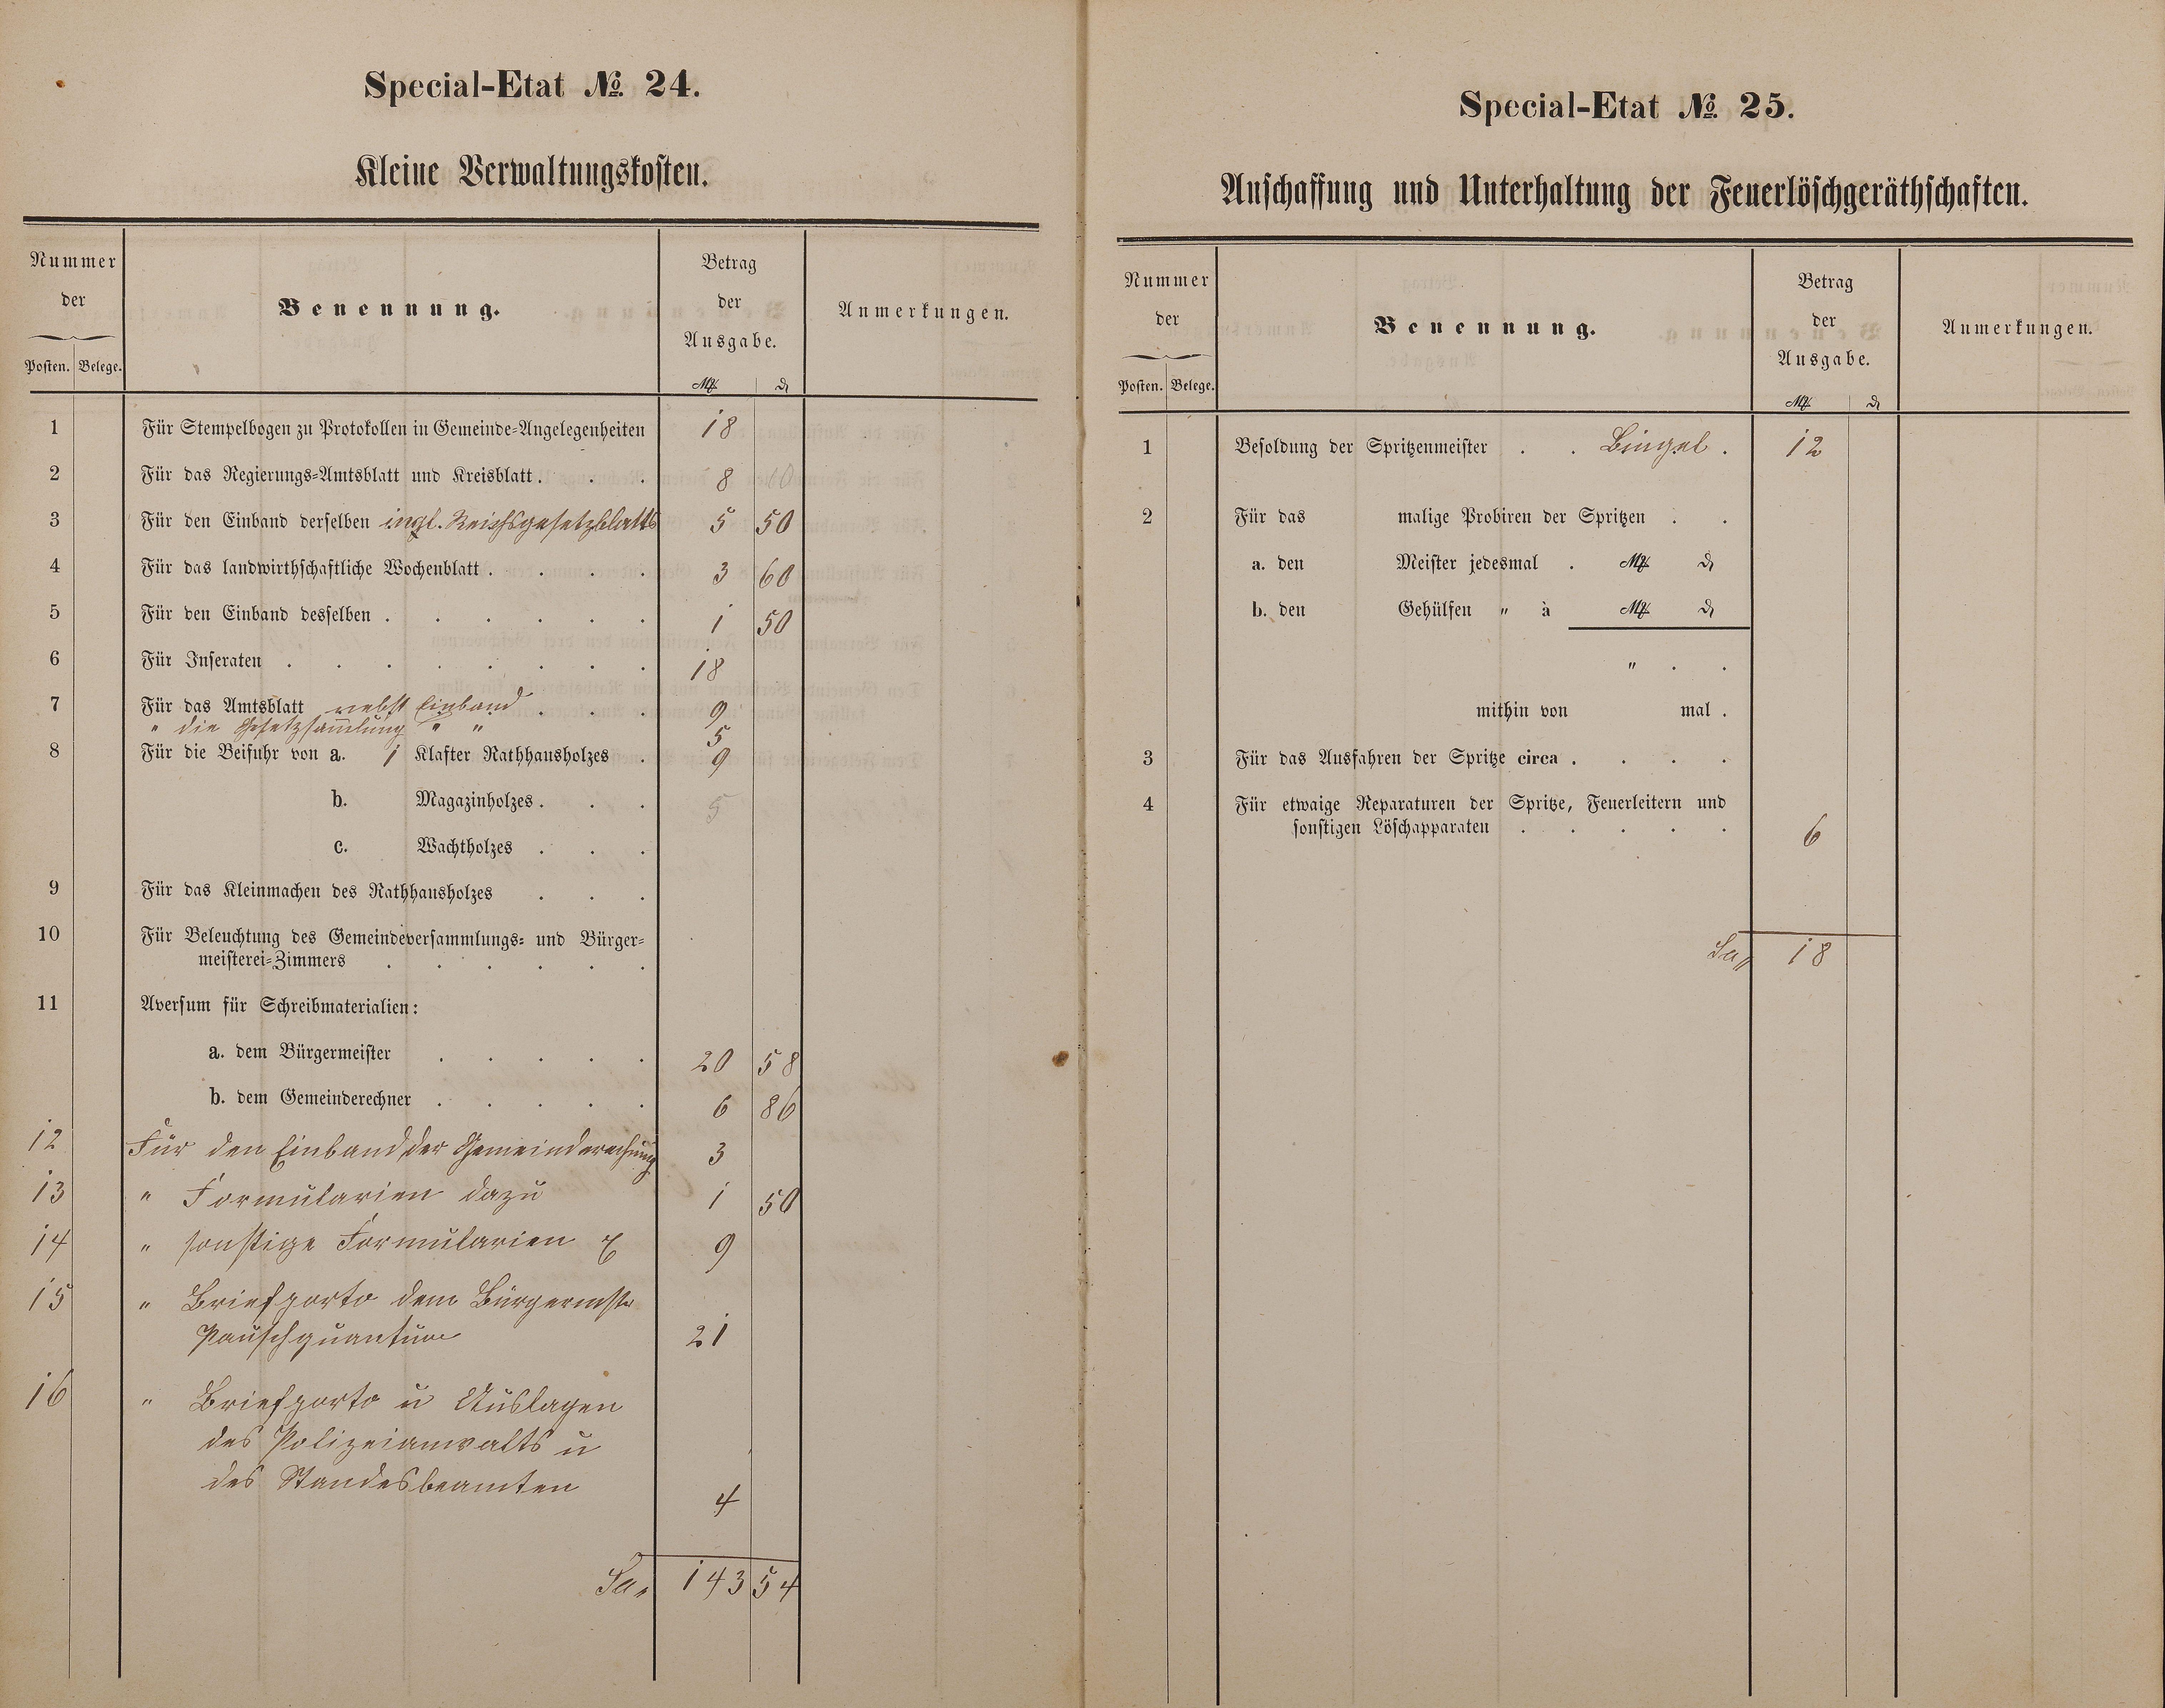 Special-Etat № 24.
Kleine Verwaltungskosten.
Nummer der
Posten. Belege.
Benennung.
Betrag der Ausgabe.
ℳ ₰
Anmerkungen.
1 Für Stempelbogen zu Protokollen in Gemeinde-Angelegenheiten 18
2 Für das Regierungs-Amtsblatt und Kreisblatt . . . 8
3 Für den Einband derselben incl. Reichsgesetzblatts 5 50
4 Für das landwirthschaftliche Wochenblatt . . . . 3 60
5 Für den Einband desselben . . . . . . 1 50
6 Für Inseraten . . . . . . . . 18
7 Für das Amtsblatt nebst Einband . . . 9
" die Gesetzsammlung " " 5
8 Für die Beifuhr von a. 1 Klafter Rathhausholzes . 9
b. Magazinholzes . . . 5
c. Wachtholzes . . .
9 Für das Kleinmachen des Rathhausholzes . . .
10 Für Beleuchtung des Gemeindeversammlungs- und Bürger-
meisterei-Zimmers . . . . . .
11 Aversum für Schreibmaterialien:
a. dem Bürgermeister . . . . . 20 58
b. dem Gemeinderechner . . . . . 6 86
12 Für den Einband der Gemeinderechnung 3
13 " Formularien dazu 1 50
14 " sonstige Formularien 9
15 " Briefporto dem Bürgermstr
Pauschquantum 21
16 " Briefporto u Auslagen
des Polizeianwalts u
des Standesbeamten 4
Sa. 143 54
Special-Etat № 25.
Anschaffung und Unterhaltung der Feuerlöschgeräthschaften.
Nummer der
Posten. Belege.
Benennung.
Betrag der Ausgabe.
ℳ ₰
Anmerkungen.
1 Besoldung der Spritzenmeister . . Bingel . 12
2 Für das malige Probiren der Spritzen . .
a. den Meister jedesmal . ℳ ₰
b. den Gehülfen " à ℳ ₰
" . .
mithin von mal .
3 Für das Ausfahren der Spritze circa . . . .
4 Für etwaige Reparaturen der Spritze, Feuerleitern und
sonstigen Löschapparaten . . . . . 6
Sa. 18